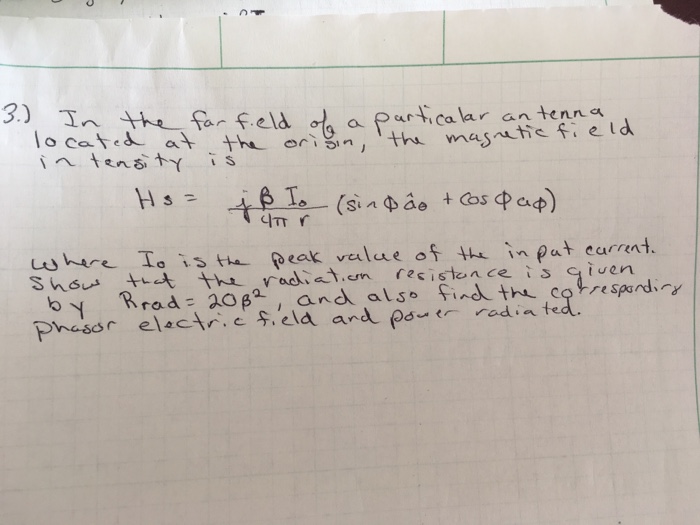 3.) In the far field of a particalar antenna
located at the origin, the magnetic field
intensity is
Hs = jβ I₀ / 4π r (sin Φ âθ + cos Φ aφ)
where I₀ is the peak value of the input current.
Show that the radiation resistance is given
by Rrad = 20β², and also find the corresponding
phasor electric field and power radiated.